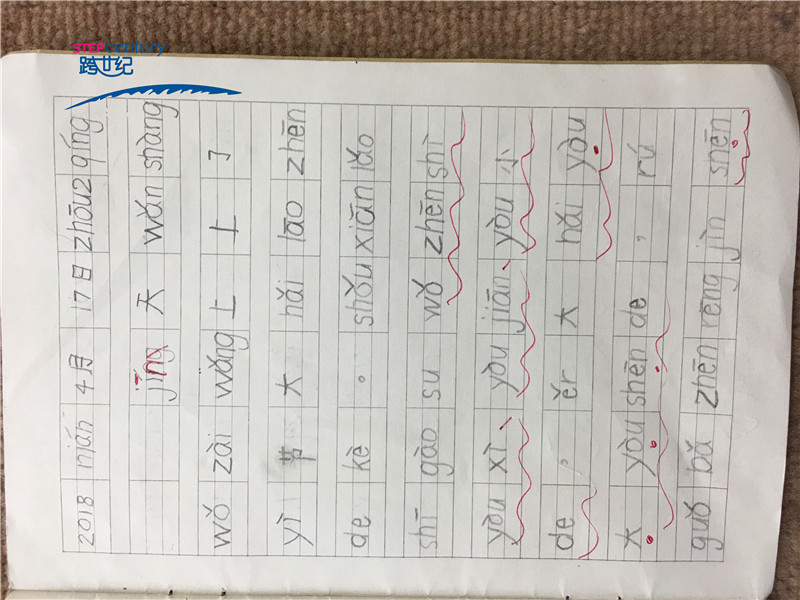 STEP century
跨世纪
2018 nián 4月 17日 zhōu2 qíng
jīng 天 wǎn shàng
wǒ zài wǎng 上 上 了
yì 节 大 hǎi lāo zhēn
de kè 。 shǒu xiān lǎo
shī gào su wǒ zhēn shì
yòu xì、 yòu jiān、 yòu 小
de ， ěr 大 hǎi yòu
大 yòu shēn de ， rú
guǒ bǎ zhēn rēng jìn shēn